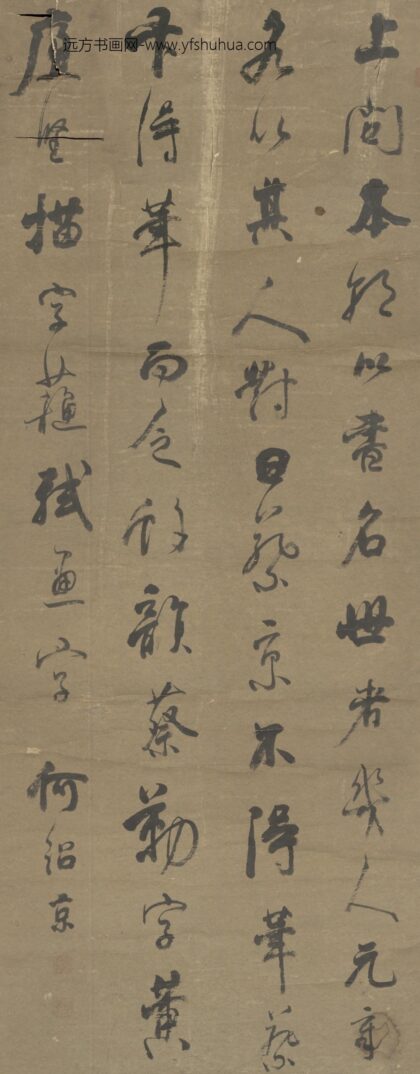 远方书画网-www.yfshuhua.com
上問本朝以書名世者幾人元章
各以其人對曰蔡京不得筆蔡
卞得筆而乏逸韻蔡勒字黃
庭堅描字蘇軾畫字 何紹京